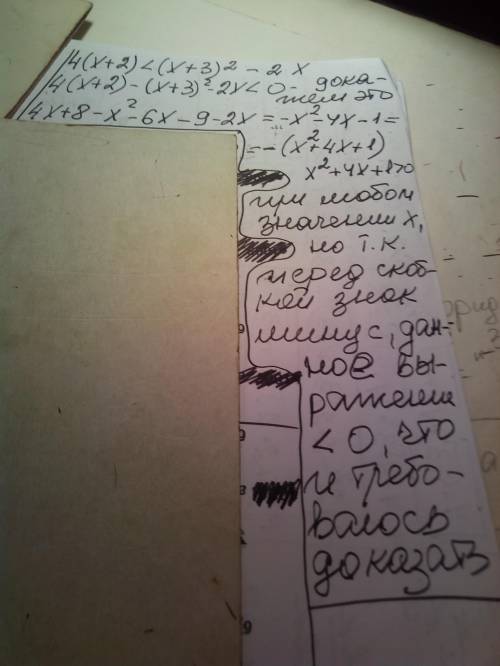 4(x+2)<(x+3)² - 2x
4(x+2)-(x+3)²-2x<0- дока-
жем это
4x+8-x²-6x-9-2x=-x²-4x-1=
=-(x²+4x+1)
x²+4x+1>0
при любом
значении x,
но т.к.
перед скоб-
кой знак
минус, дан-
ное вы-
ражение
<0, что
и требо-
валось
доказать